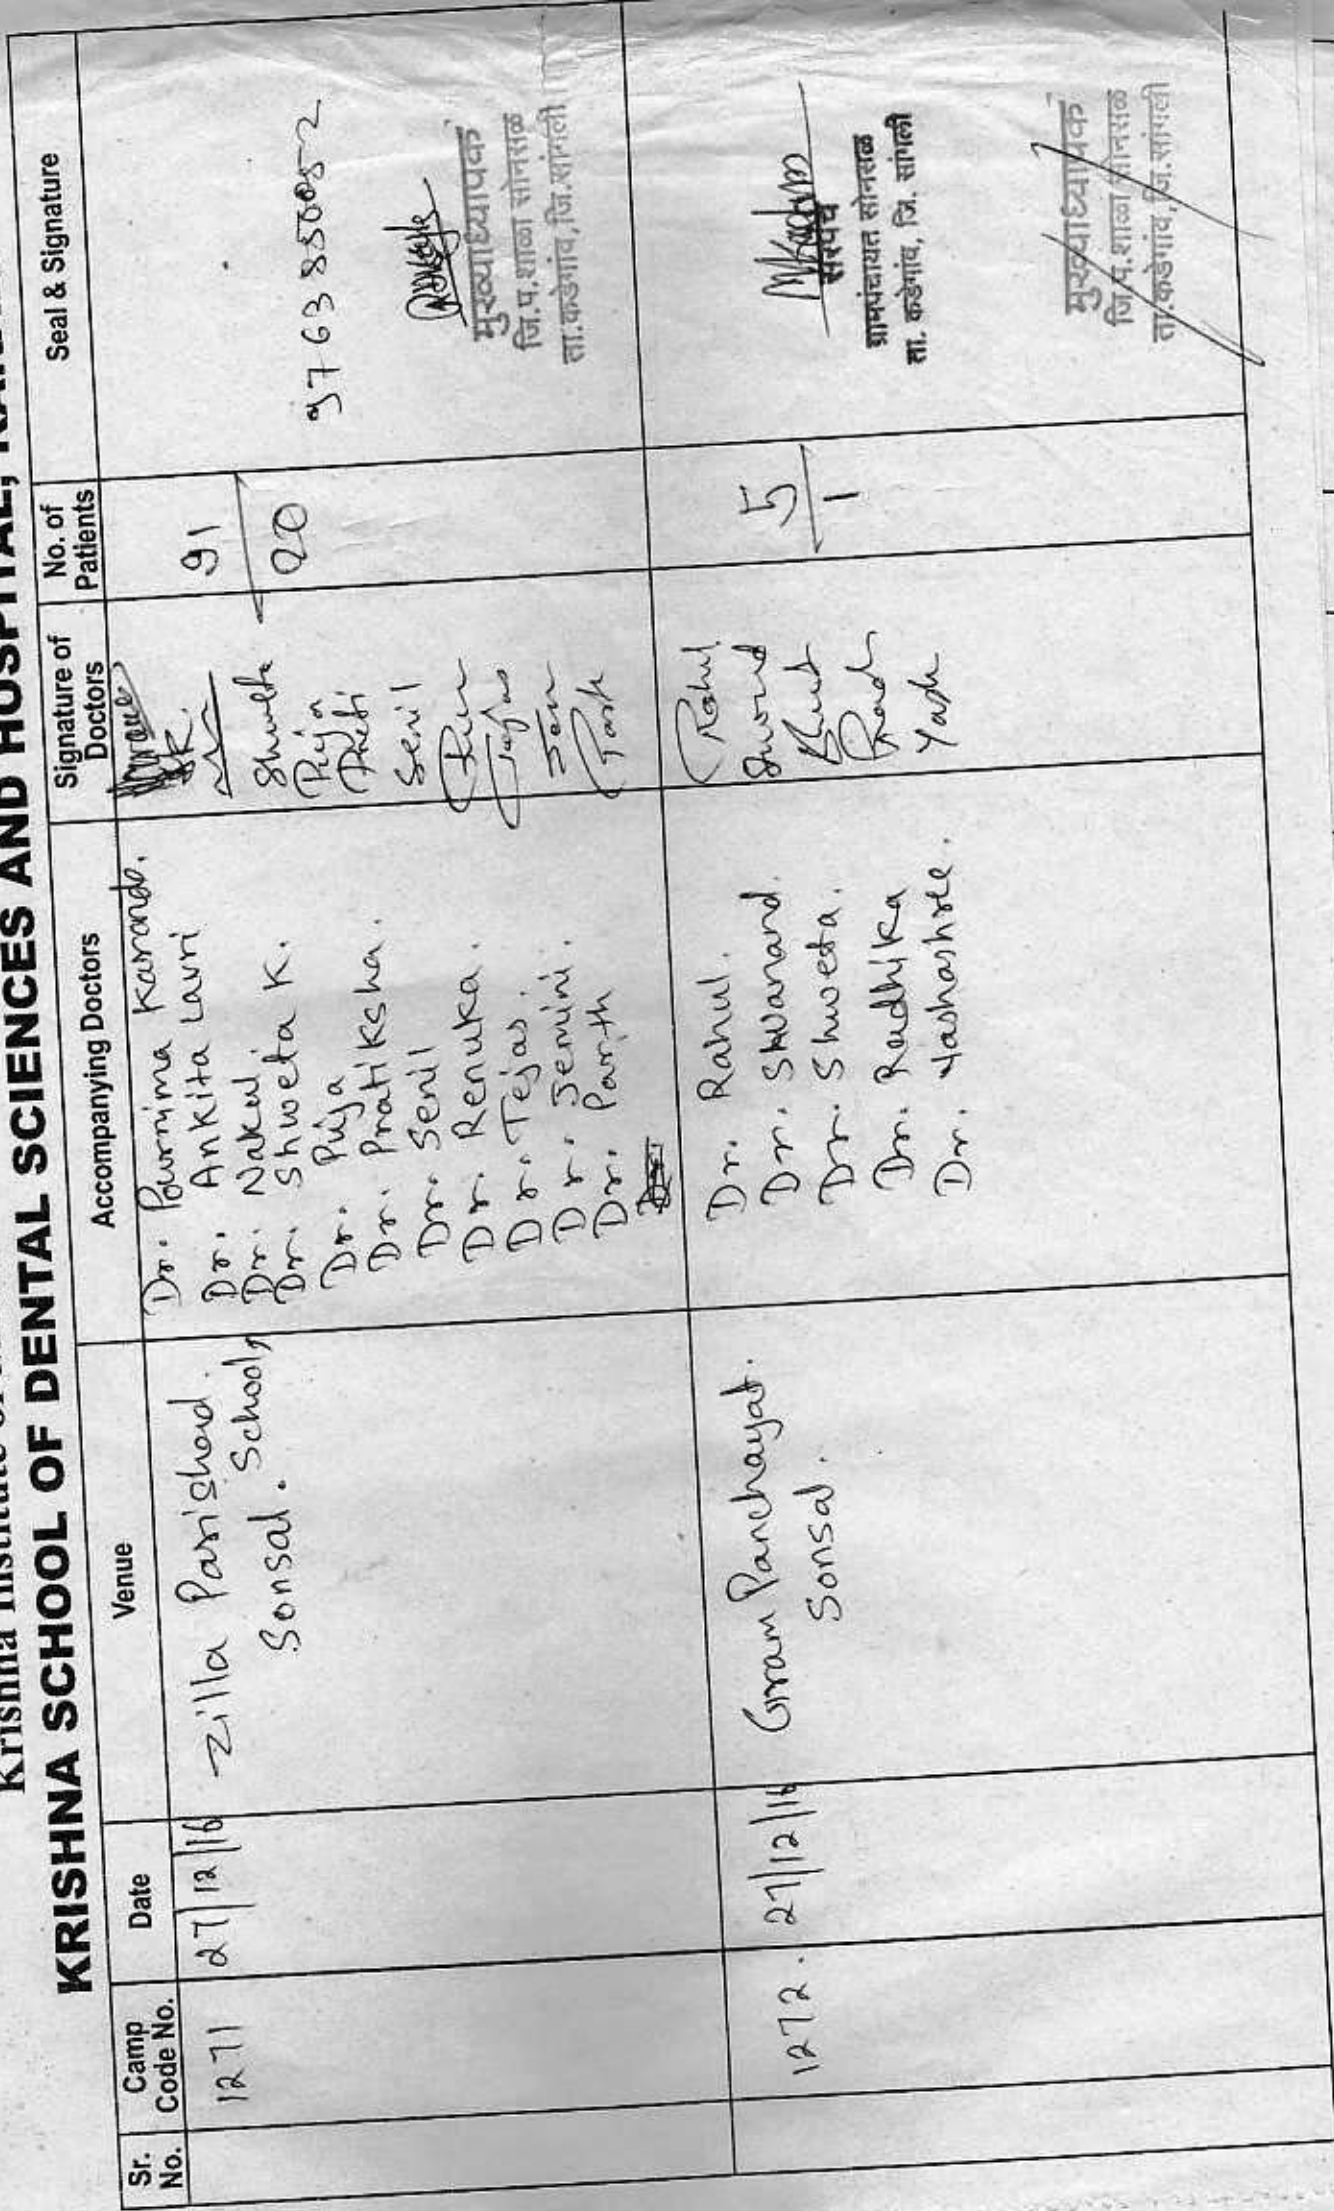 Krishna Institute of
KRISHNA SCHOOL OF DENTAL SCIENCES AND HOSPITAL,
Sr. No.
Camp Code No.
Date
Venue
Accompanying Doctors
Signature of Doctors
No. of Patients
Seal & Signature
1271
27/12/16
Zilla Parishad.
Sonsal. School
Dr. Pournima Karande.
Dr. Ankita Lavri
Dr. Nakul.
Dr. Shweta K.
Dr. Puja
Dr. Pratiksha.
Dr. Senil
Dr. Renuka.
Dr. Tejas.
Dr. Jemini.
Dr. Parth
Puja
Senil
Tejas
Parth
91
20
मुख्याध्यापक
जि.प.शाळा सोनसळ
ता.कडेगांव,जि.सांगली
1272.
27/12/16
Gram Panchayat.
Sonsal.
Dr. Rahul.
Dr. Shivanand.
Dr. Shweta.
Dr. Radhika
Dr. Yashashree.
Rahul
Yash
5
1
सरपंच
ग्रामपंचायत सोनसळ
ता. कडेगांव, जि. सांगली
मुख्याध्यापक
जि.प.शाळा सोनसळ
ता.कडेगांव,जि.सांगली